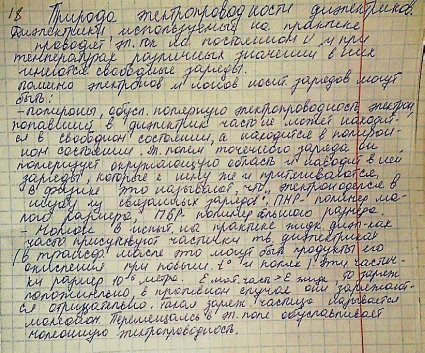 18 Природа электропроводности диэлектриков.
Диэлектрики используемые на практике
проводят эл. ток на постоянном U и при
температурах различных значений в них
имеются свободные заряды.
помимо электронов и ионов носит. зарядов могут
быть:
- поляроны, обусл. полярную электропроводность, электрон
попавший в диэлектрик часто не может находит-
ся в свободном состоянии, а находится в поляров-
ном состоянии. Эл. полем точечного заряда он
поляризует окружающую область и наводит в ней
заряды, которые к нему же и притягиваются,
в физике это называют, что "электрон оделся в
шубу из связанных зарядов". ПМР- полярон ма-
лого размера, ПБР- полярон большого размера.
- Молионы. в испыт. на практике жидк. диэл-ках
часто присутствуют частички тв. диэлектрика
(в трансф. масле это могут быть продукты его
окисления при повыш. t° и полях). Эти частич-
ки размер 10 метра. E мол. часть > E жидк. то заряж.
положительно, в противном случае они заряжают-
ся отрицательно. такая заряж. частица называется
молион. Перемещаясь в эл. поле обуславливает
молионную электропроводность.